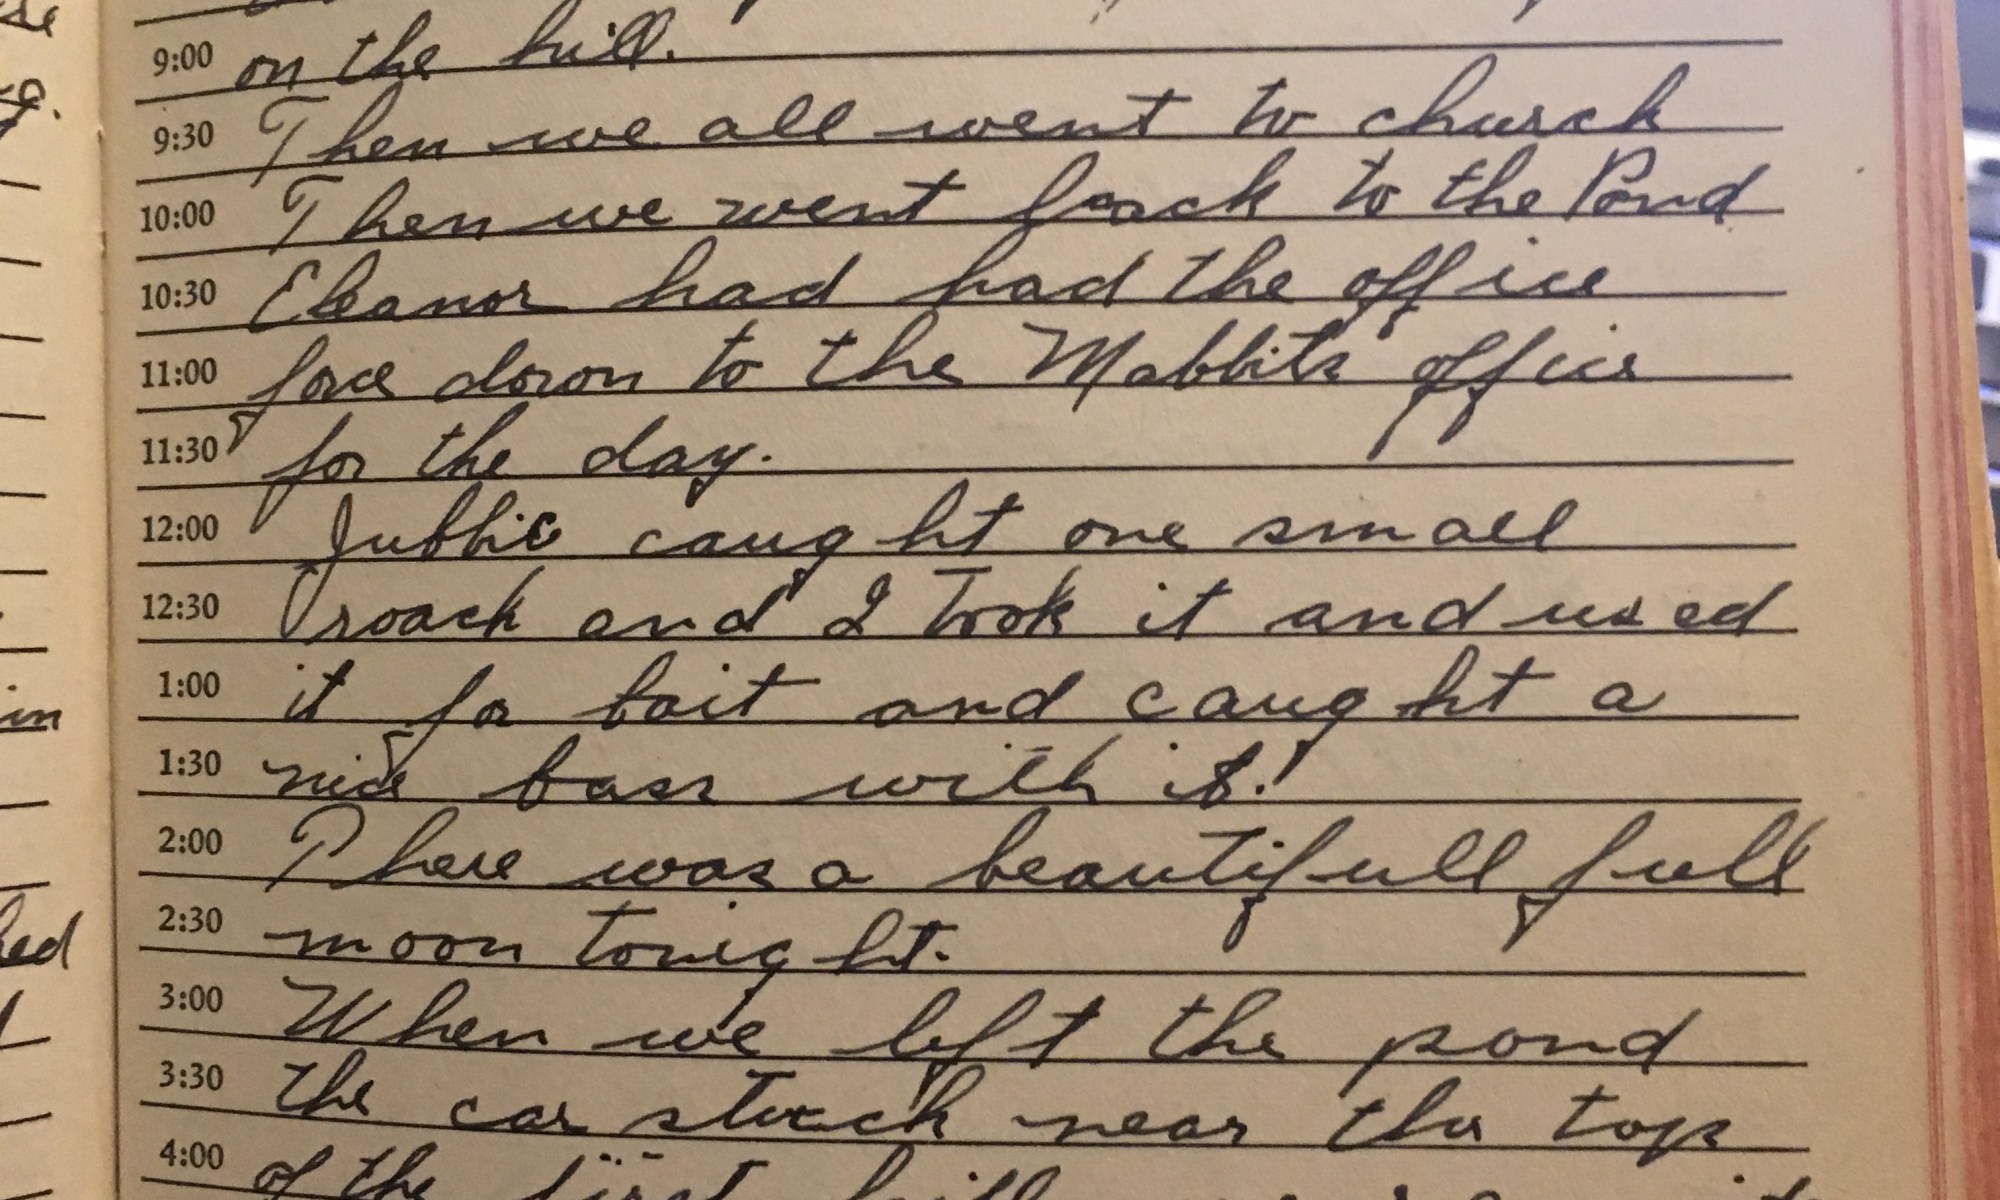 9:00 on the hill.
9:30 Then we all went to church
10:00 Then we went back to the Pond
10:30 Eleanor had had the office
11:00 force down to the Mabbitts office
11:30 for the day.
12:00 caught one small
12:30 roach and I took it and used
1:00 it for bait and caught a
1:30 nice bass with it!
2:00 There was a beautifull full
2:30 moon tonight.
3:00 When we left the pond
3:30 the car stuck near the top
4:00 of the first hill